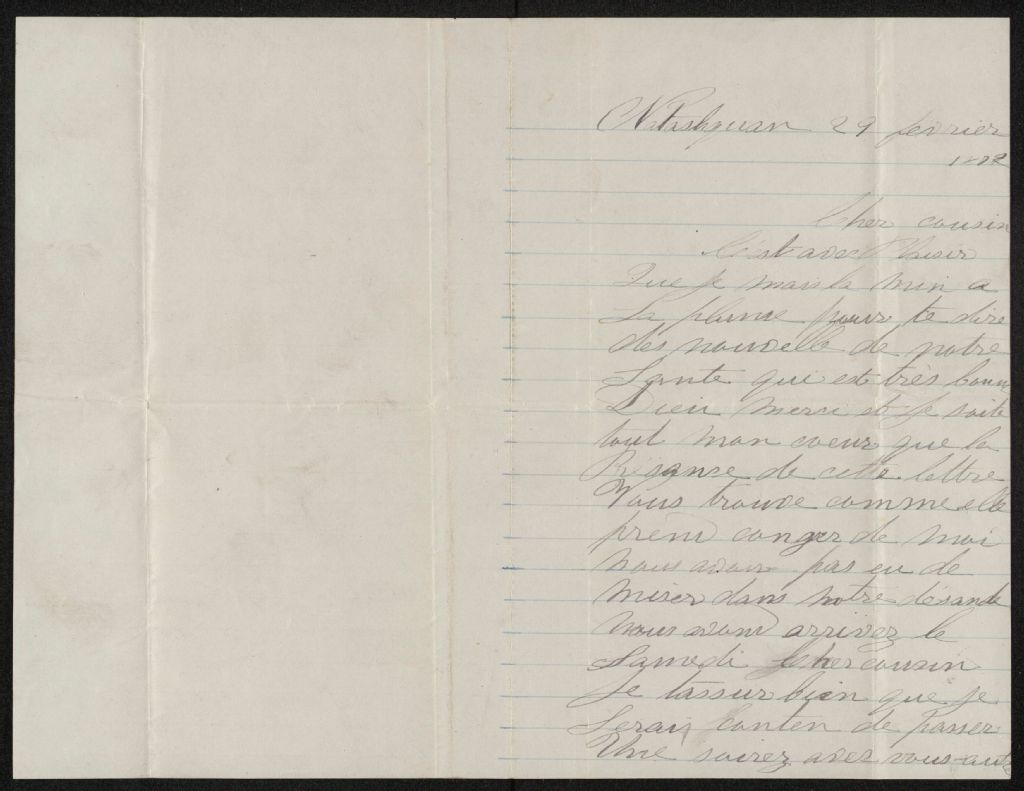 Natashquan 29 fevrier
Cher cousin
C'est avec Plaisir
Que je mais la min a
La plume pour te dire
des nouvelle de notre
Sante qui est très bonn
Dieu merci et je soite
tout mon coeur que la
de cette lettre
Vous trouve comme elle
prend conger de moi
nous avons pas eu de
miser dans notre désande
nous avond arrivez le
Samedi Cher cousin
Je tassur bien que je
Serais Conten de passer
Une soirez avec vous-aut